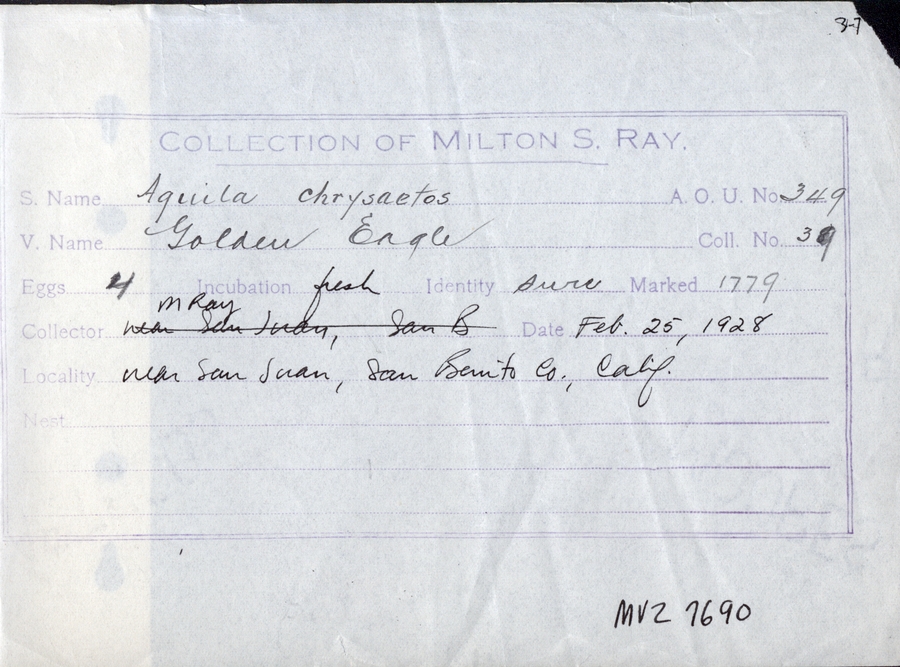 3-7
COLLECTION OF MILTON S. RAY.
S. Name Aquila chrysaetos A. O. U. No. 349
V. Name Golden Eagle Coll. No. 39
Eggs 4 Incubation fresh Identity sure Marked 1779
M Ray
Collector near San Juan, San B Date Feb. 25, 1928
Locality near San Juan, San Benito Co., Calif.
Nest
MVZ 7690